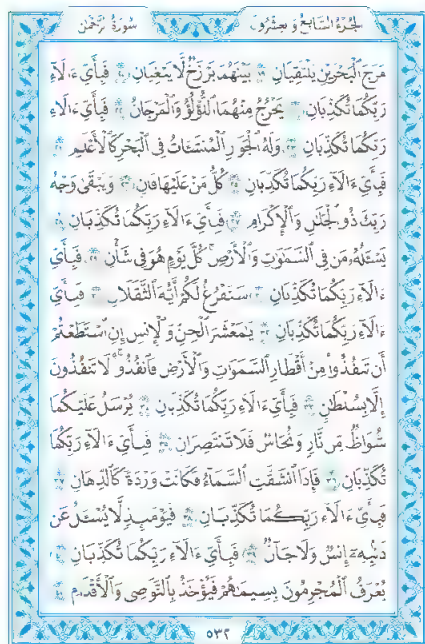 سُورَةُ الرَّحْمَٰن الجُزْءُ السَّابِعُ وَالعِشْرُونَ
مَرَجَ ٱلْبَحْرَيْنِ يَلْتَقِيَانِ ١٩ بَيْنَهُمَا بَرْزَخٌ لَّا يَبْغِيَانِ ٢٠ فَبِأَيِّ ءَالَآءِ
رَبِّكُمَا تُكَذِّبَانِ ٢١ يَخْرُجُ مِنْهُمَا ٱللُّؤْلُؤُ وَٱلْمَرْجَانُ ٢٢ فَبِأَيِّ ءَالَآءِ
رَبِّكُمَا تُكَذِّبَانِ ٢٣ وَلَهُ ٱلْجَوَارِ ٱلْمُنشَـَٔاتُ فِى ٱلْبَحْرِ كَٱلْأَعْلَٰمِ ٢٤
فَبِأَيِّ ءَالَآءِ رَبِّكُمَا تُكَذِّبَانِ ٢٥ كُلُّ مَنْ عَلَيْهَا فَانٍ ٢٦ وَيَبْقَىٰ وَجْهُ
رَبِّكَ ذُو ٱلْجَلَٰلِ وَٱلْإِكْرَامِ ٢٧ فَبِأَيِّ ءَالَآءِ رَبِّكُمَا تُكَذِّبَانِ ٢٨
يَسْـَٔلُهُۥ مَن فِى ٱلسَّمَٰوَٰتِ وَٱلْأَرْضِ ۚ كُلَّ يَوْمٍ هُوَ فِى شَأْنٍ ٢٩ فَبِأَيِّ
ءَالَآءِ رَبِّكُمَا تُكَذِّبَانِ ٣٠ سَنَفْرُغُ لَكُمْ أَيُّهَ ٱلثَّقَلَانِ ٣١ فَبِأَيِّ
ءَالَآءِ رَبِّكُمَا تُكَذِّبَانِ ٣٢ يَٰمَعْشَرَ ٱلْجِنِّ وَٱلْإِنسِ إِنِ ٱسْتَطَعْتُمْ
أَن تَنفُذُوا۟ مِنْ أَقْطَارِ ٱلسَّمَٰوَٰتِ وَٱلْأَرْضِ فَٱنفُذُوا۟ ۚ لَا تَنفُذُونَ
إِلَّا بِسُلْطَٰنٍ ٣٣ فَبِأَيِّ ءَالَآءِ رَبِّكُمَا تُكَذِّبَانِ ٣٤ يُرْسَلُ عَلَيْكُمَا
شُوَاظٌ مِّن نَّارٍ وَنُحَاسٌ فَلَا تَنتَصِرَانِ ٣٥ فَبِأَيِّ ءَالَآءِ رَبِّكُمَا
تُكَذِّبَانِ ٣٦ فَإِذَا ٱنشَقَّتِ ٱلسَّمَآءُ فَكَانَتْ وَرْدَةً كَٱلدِّهَانِ ٣٧
فَبِأَيِّ ءَالَآءِ رَبِّكُمَا تُكَذِّبَانِ ٣٨ فَيَوْمَئِذٍ لَّا يُسْـَٔلُ عَن
ذَنۢبِهِۦٓ إِنسٌ وَلَا جَآنٌّ ٣٩ فَبِأَيِّ ءَالَآءِ رَبِّكُمَا تُكَذِّبَانِ ٤٠
يُعْرَفُ ٱلْمُجْرِمُونَ بِسِيمَٰهُمْ فَيُؤْخَذُ بِٱلنَّوَٰصِى وَٱلْأَقْدَامِ ٤١
٥٣٢